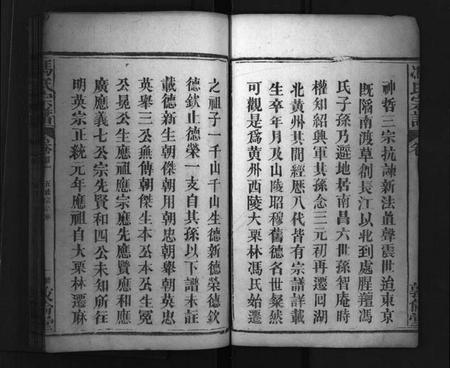 馮氏宗譜
神哲三宗抗諫新法直聲震世迨東京
既陷南渡草創長江以北到處腥羶馮
氏子孫乃遯地居南昌六世孫智庵時
權知紹興軍其孫念三元初再遷回湖
北黃州其間經歷八代皆有宗譜詳載
生卒年月及山陵昭穆舊德名世粲然
可觀是爲黃州西陵大栗林馮氏始遷
之祖子一千山千山生德新德榮德欽
德欽止德榮一支自其孫以下譜未註
載德新生朝傑朝用朝忠朝舉朝英忠
英舉三公無傳朝傑生本公本公生冕
公晃公生應祖應宗應先應賢應和應
廣應義七公宗先賢和四公未知所往
明英宗正統元年應祖自大栗林遷麻
馮氏宗譜